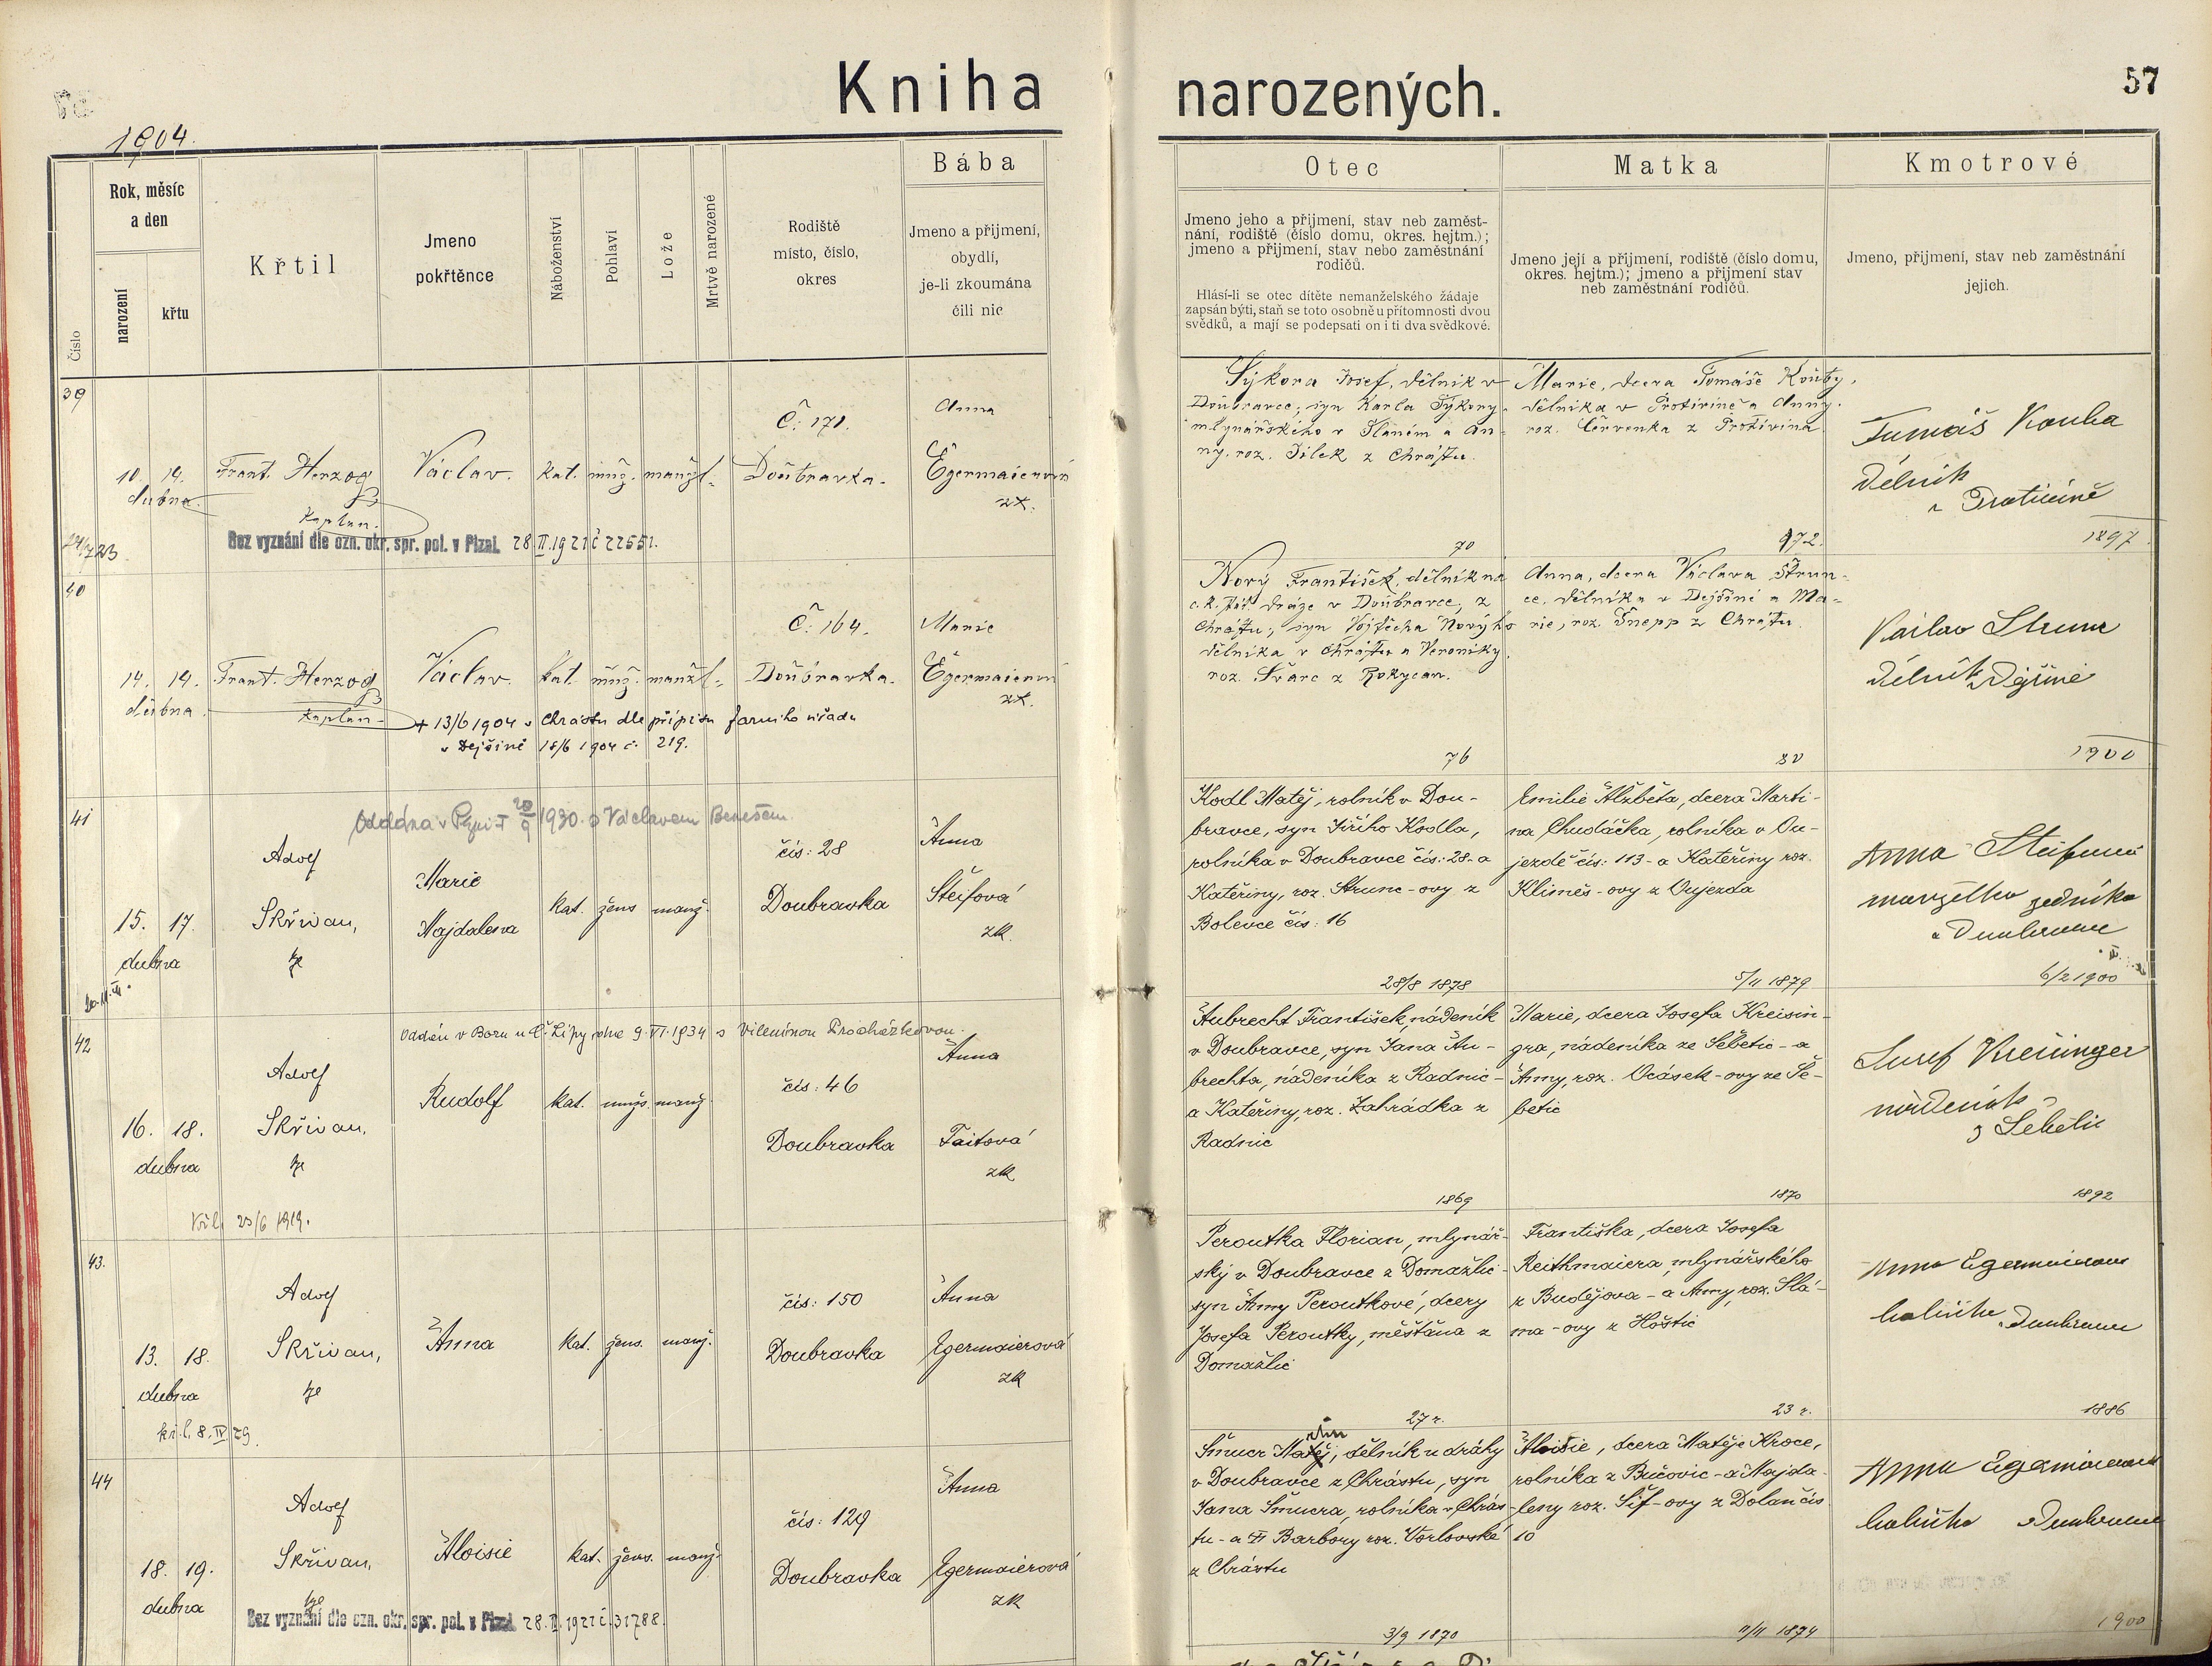 Kniha narozených.
57
1904.
Číslo
Rok, měsíc
a den
narození
křtu
Křtil
Jmeno
pokřtěnce
Náboženství
Pohlaví
Lože
Mrtvě narozené
Rodiště
místo, číslo,
okres
Bába
Jmeno a příjmení,
obydlí,
je-li zkoumána
čili nic
Otec
Jmeno jeho a příjmení, stav neb zaměst-
nání, rodiště (číslo domu, okres. hejtm.);
jmeno a příjmení, stav nebo zaměstnání
rodičů.
Hlásí-li se otec dítěte nemanželského žádaje
zapsán býti, staň se toto osobně u přítomnosti dvou
svědků, a mají se podepsati on i ti dva svědkové.
Matka
Jmeno její a příjmení, rodiště (číslo domu,
okres. hejtm.); jmeno a příjmení stav
neb zaměstnání rodičů.
Kmotrové
Jmeno, příjmení, stav neb zaměstnání
jejich.
39
10. 14.
dubna.
Frant. Herzog
Kaplan.
Václav.
kat. muž. manžl.
Č: 171.
Doubravka.
Anna
Egermaierová
zk.
Bez vyznání dle ozn. okr. spr. pol. v Plzni 28.II.1921 č 22551.
Sýkora Josef, dělník v
Doubravce; syn Karla Sýkory
mlynářského v Slaném a An-
ny, roz. Jílek z Chrástu.
70
Marie, dcera Tomáše Kouby,
dělníka v Protivíně a Anny
roz. Červenka z Protivína
972.
Tumáš Kouba
Dělník
v Protivíně
1897
40
14. 14.
dubna.
Frant. Herzog
Kaplan
Václav.
kat. muž. manžl.
Č: 164.
Doubravka.
Marie
Egermaierová
zk.
+ 13/6 1904 v Chrástu dle přípisu farního úřadu
v Dejšině 18/6 1904 č. 219.
Nový František, dělník na
c. k. stát. dráze v Doubravce, z
Chrástu; syn Vojtěcha Nového
dělníka v Chrástu a Veroniky,
roz. Švarc z Rokycan.
76
Anna, dcera Václava Štrun-
ce, dělníka v Dejšině a Ma-
rie, roz. Šnepp z Chrástu.
80
Václav Strunc
dělník z Dejšině
1900
41
Oddána v Plzni 20/9 1930 s Václavem Benešem
15. 17.
dubna
Adolf
Skřivan,
Marie
Majdalena
kat. žens manž.
čís: 28
Doubravka
Anna
Šteifová
zk.
Kodl Matěj, rolník v Dou-
bravce, syn Jiřího Kodla,
rolníka v Doubravce čís: 28 - a
Kateřiny, roz. Strunc-ovy z
Bolevce čís: 16
28/8 1878
Emilie Alžběta, dcera Marti-
na Chudáčka, rolníka v Ou-
jezdě čís: 113 - a Kateřiny roz.
Klimeš-ovy z Oujezda
5/11 1879
Anna Šteifová
manželka zedníka
v Doubravce
6/2 1900
42
Oddán v Boru u Č. Lípy dne 9.VI.1934 s Vilemínou Procházkovou.
16. 18.
dubna
Adolf
Skřivan,
Rudolf
kat. mužs. manž.
čís: 46
Doubravka
Anna
Taitová
zk
Aubrecht František, nádeník
v Doubravce, syn Jana Au-
brechta, nádeníka z Radnic -
a Kateřiny, roz. Zahrádka z
Radnic
1869
Marie, dcera Josefa Kreisin-
gra, nádeníka ze Šebetic - a
Anny, roz. Ocásek-ovy ze Še-
betic
1870
Josef Kreisinger
nádeník
z Šebetic
1892
23/6 1919.
43.
13. 18.
dubna
Adolf
Skřivan,
Anna
kat. žens. manž.
čís: 150
Doubravka
Anna
Egermaierová
zk
8.IV.29.
Peroutka Florian, mlynář-
ský v Doubravce z Domažlic -
syn Anny Peroutkové, dcery
Josefa Peroutky, měšťana z
Domažlic
27 r.
Františka, dcera Josefa
Reithmaiera, mlynářského
z Budějova - a Anny, roz. Slá-
ma-ovy z Hoštic
23 r.
Anna Egermaierová
babička v Doubravce
1886
44
18. 19.
dubna
Adolf
Skřivan,
Aloisie
kat. žens. manž.
čís: 129
Doubravka
Anna
Egermaierová
zk
Bez vyznání dle ozn. okr. spr. pol. v Plzni 28.II.1921 č. 31788.
Šmucr Matěj, dělník u dráhy
v Doubravce z Chrástu, syn
Jana Šmucra, rolníka v Chrás-
tu - a Barbory roz. Vorlovské
z Chrástu
3/9 1870
Aloisie, dcera Matěje Kroce,
rolníka z Bučovic - a Majda-
leny roz. Šíf-ovy z Dolan čís
10
11/11 1874
Anna Egermaierová
babička v Doubravce
1900